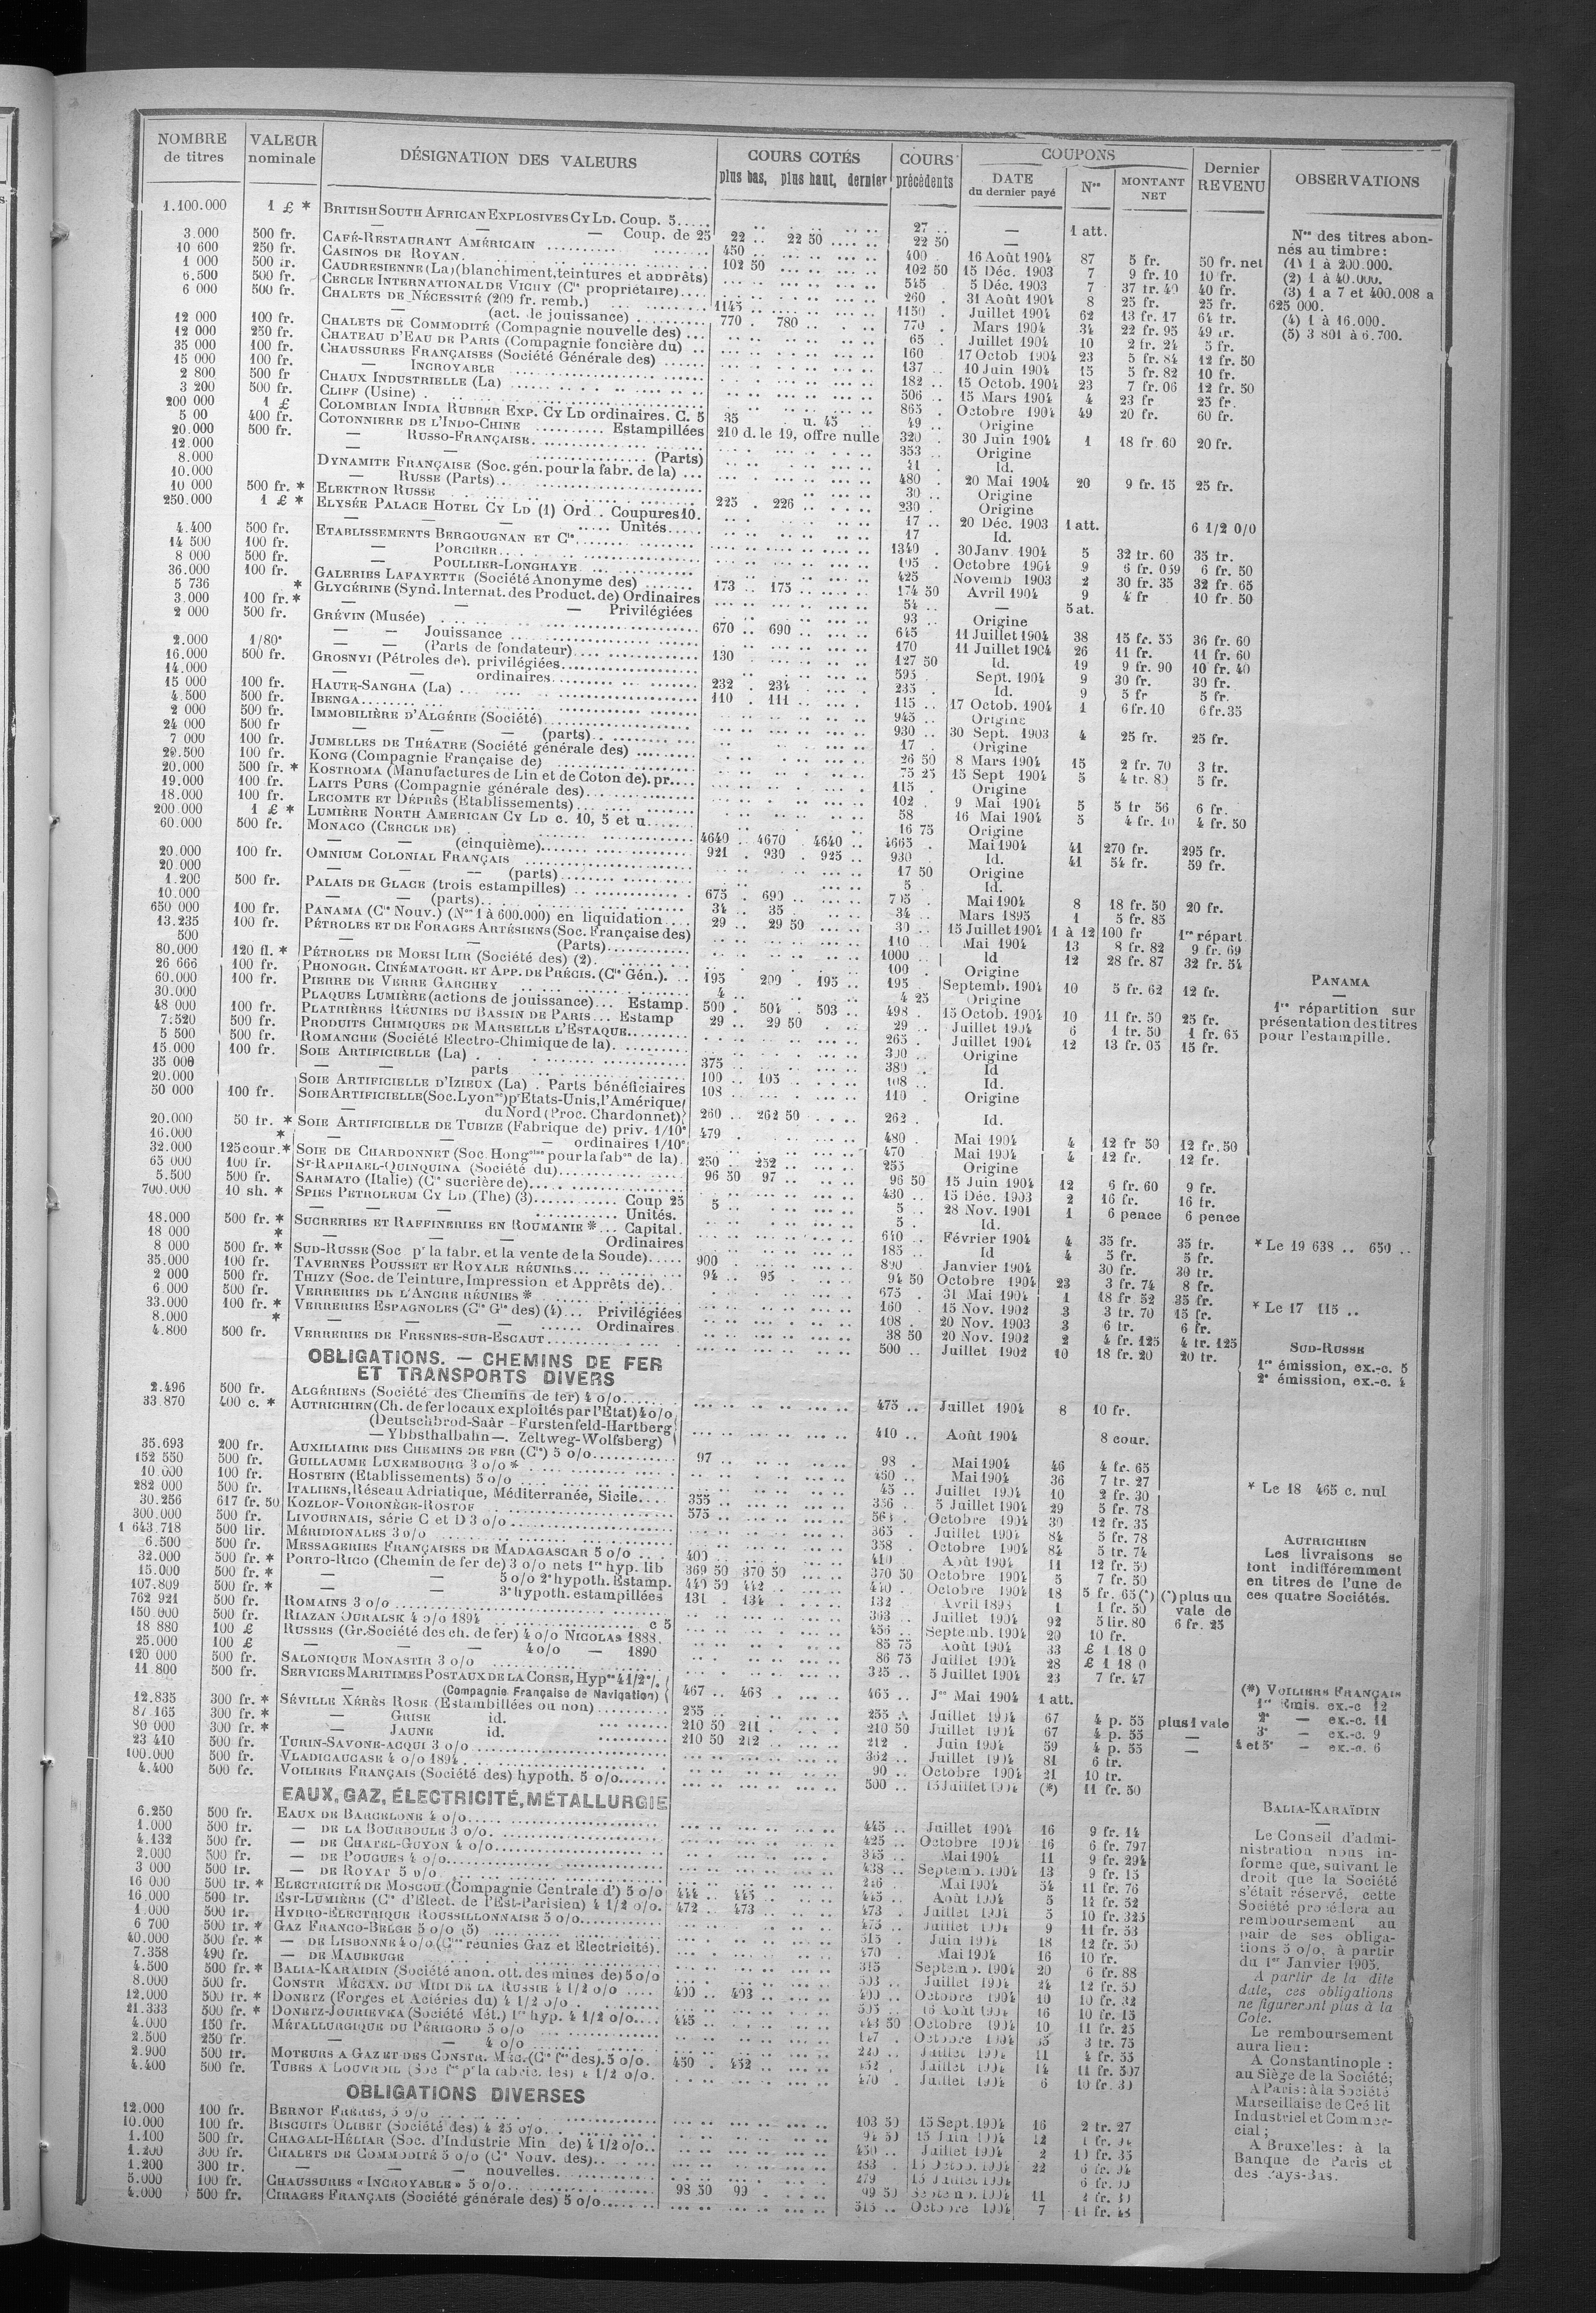 NOMBRE de titres | VALEUR nominale | DÉSIGNATION DES VALEURS | COURS COTÉS plus bas, plus haut, dernier | COURS précédents | COUPONS DATE du dernier payé | Nos | MONTANT NET | Dernier REVENU | OBSERVATIONS
1.100.000 1 £ * BRITISH SOUTH AFRICAN EXPLOSIVES CY LD. Coup. 5..... 27 .. — 1 att.
— — — Coup. de 25 22 .. 22 50 22 50 —
3.000 500 fr. CAFÉ-RESTAURANT AMÉRICAIN 450 .. 400 . 16 Août 1904 87 5 fr. 50 fr. net
10 600 250 fr. CASINOS DE ROYAN. 102 50 102 50 15 Déc. 1903 7 9 fr. 10 10 fr.
1 000 500 fr. CAUDRESIENNE (La) (blanchiment, teintures et apprêts) 545 5 Déc. 1903 7 37 fr. 40 40 fr.
6.500 500 fr. CERCLE INTERNATIONAL DE VICHY (Cie propriétaire).... 260 . 31 Août 1904 8 25 fr. 25 fr.
6 000 500 fr. CHALETS DE NÉCESSITÉ (200 fr. remb.) 1145 .. 1150 . Juillet 1904 62 13 fr. 17 64 fr.
— (act. de jouissance) 770 . 780 .. 770 . Mars 1904 34 22 fr. 95 49 fr.
12 000 100 fr. CHALETS DE COMMODITÉ (Compagnie nouvelle des) ... 65 . Juillet 1904 10 2 fr. 24 5 fr.
12 000 250 fr. CHATEAU D'EAU DE PARIS (Compagnie foncière du) .. 160 17 Octob 1904 23 5 fr. 84 12 fr. 50
35 000 100 fr. CHAUSSURES FRANÇAISES (Société Générale des) ...... 137 .. 10 Juin 1904 15 5 fr. 82 10 fr.
15 000 100 fr. — INCROYABLE 182 .. 15 Octob. 1904 23 7 fr. 06 12 fr. 50
2 800 500 fr CHAUX INDUSTRIELLE (La) 506 .. 15 Mars 1904 4 23 fr 25 fr.
3 200 500 fr. CLIFF (Usine) . 865 . Octobre 1904 49 20 fr. 60 fr.
200 000 1 £ COLOMBIAN INDIA RUBBER EXP. CY LD ordinaires. C. 5 35 . u. 45 .. 49 .. Origine
5 00 400 fr. COTONNIERE DE L'INDO-CHINE .......... Estampillées 210 d. le 19, offre nulle 320 . 30 Juin 1904 1 18 fr 60 20 fr.
20.000 500 fr. — RUSSO-FRANÇAISE. 353 .. Origine
12.000 — — (Parts) 41 . Id.
8.000 DYNAMITE FRANÇAISE (Soc. gén. pour la fabr. de la) ... 480 . 20 Mai 1904 20 9 fr. 15 25 fr.
10.000 — RUSSE (Parts).. 30 .. Origine
10 000 500 fr. * ELEKTRON RUSSE 225 . 226 .. 230 . Origine
250.000 1 £ * ELYSÉE PALACE HOTEL CY LD (1) Ord . Coupures 10. 17 .. 20 Déc. 1903 1 att. 6 1/2 0/0
— — — ..... Unités..... 17 Id.
4.400 500 fr. ETABLISSEMENTS BERGOUGNAN ET Cie. 1340 . 30 Janv. 1904 5 32 fr. 60 35 fr.
14 500 100 fr. — PORCHER 105 . Octobre 1904 9 6 fr. 059 6 fr. 50
8 000 500 fr. — POULLIER-LONGHAYE 425 Novemb 1903 2 30 fr. 35 32 fr. 65
36.000 100 fr. GALERIES LAFAYETTE (Société Anonyme des) 173 .. 175 .. 174 50 Avril 1904 9 4 fr 10 fr. 50
5 736 * GLYCÉRINE (Synd. Internat. des Product. de) Ordinaires 54 .. — 5 at.
3.000 100 fr. * — — — Privilégiées 93 .. Origine
2 000 500 fr. GRÉVIN (Musée) 670 .. 690 .. 645 11 Juillet 1904 38 15 fr. 55 36 fr. 60
— — Jouissance 170 11 Juillet 1904 26 11 fr. 11 fr. 60
2.000 1/80e — — (Parts de fondateur) 130 127 50 Id. 19 9 fr. 90 10 fr. 40
16.000 500 fr. GROSNYI (Pétroles de). privilégiées 595 . Sept. 1904 9 30 fr. 30 fr.
14.000 — ordinaires 232 . 234 .. 235 . Id. 9 5 fr 5 fr.
15 000 100 fr. HAUTE-SANGHA (La) 110 . 111 .. 115 .. 17 Octob. 1904 1 6 fr. 10 6 fr. 35
4.500 500 fr. IBENGA 945 .. Origine
2 000 500 fr. IMMOBILIÈRE D'ALGÉRIE (Société) 930 .. 30 Sept. 1903 4 25 fr. 25 fr.
24 000 500 fr — — — (parts) 17 . Origine
7 000 100 fr. JUMELLES DE THÉATRE (Société générale des) 26 50 8 Mars 1904 15 2 fr. 70 3 fr.
20.500 100 fr. KONG (Compagnie Française de) 75 25 15 Sept 1904 5 4 fr. 80 5 fr.
20.000 500 fr. * KOSTROMA (Manufactures de Lin et de Coton de). pr.... 115 . Origine
19.000 100 fr. LAITS PURS (Compagnie générale des) 102 . 9 Mai 1904 5 5 fr 56 6 fr.
18.000 100 fr. LECOMTE ET DÉPRÈS (Etablissements) 58 16 Mai 1904 5 4 fr. 10 4 fr. 50
200.000 1 £ * LUMIÈRE NORTH AMERICAN CY LD c. 10, 5 et u 16 75 Origine
60.000 500 fr. MONACO (CERCLE DE) 4640 .. 4670 . 4640 .. 4665 . Mai 1904 41 270 fr. 295 fr.
— — (cinquième) 921 . 930 . 925 .. 930 Id. 41 54 fr. 59 fr.
20.000 100 fr. OMNIUM COLONIAL FRANÇAIS 17 50 Origine
20 000 — — — (parts) 5 . Id.
1.200 500 fr. PALAIS DE GLACE (trois estampilles) 675 . 690 .. 705 . Mai 1904 8 18 fr. 50 20 fr.
10.000 — — (parts) 34 . 35 34 .. Mars 1895 1 5 fr. 85
650 000 100 fr. PANAMA (Cie Nouv.) (Nos 1 à 600.000) en liquidation 29 .. 29 50 30 .. 15 Juillet 1904 1 à 12 100 fr 1re répart
13.235 100 fr. PÉTROLES ET DE FORAGES ARTÉSIENS (Soc. Française des) 110 .. Mai 1904 13 8 fr. 82 9 fr. 69
500 — — (Parts) 1000 .. Id 12 28 fr. 87 32 fr. 54
80.000 120 fl. * PÉTROLES DE MOESI ILIR (Société des) (2). 100 . Origine
26 666 100 fr. PHONOGR. CINÉMATOGR. ET APP. DE PRÉCIS. (Cie Gén.). 195 200 . 195 .. 195 . Septemb. 1904 10 5 fr. 62 12 fr.
60.000 100 fr. PIERRE DE VERRE GARCHEY 4 .. 4 25 Origine
30.000 PLAQUES LUMIÈRE (actions de jouissance)... Estamp. 500 . 504 . 503 .. 498 . 15 Octob. 1904 10 11 fr. 50 25 fr.
48 000 100 fr. PLATRIÈRES RÉUNIES DU BASSIN DE PARIS ... Estamp 29 .. 29 50 29 .. Juillet 1904 6 1 fr. 50 1 fr. 65
7.520 500 fr. PRODUITS CHIMIQUES DE MARSEILLE L'ESTAQUE 265 . Juillet 1904 12 13 fr. 05 15 fr.
5 500 500 fr. ROMANCHE (Société Électro-Chimique de la). 300 .. Origine
15.000 100 fr. SOIE ARTIFICIELLE (La) 375 380 .. Id
35 000 — — parts 100 .. 105 108 .. Id.
20.000 SOIE ARTIFICIELLE D'IZIEUX (La) . Parts bénéficiaires 108 110 . Origine
50 000 100 fr. SOIE ARTIFICIELLE (Soc. Lyonse) pr Etats-Unis, l'Amérique
du Nord (Proc. Chardonnet) 260 .. 262 50 262 . Id.
20.000 50 fr. * SOIE ARTIFICIELLE DE TUBIZE (Fabrique de) priv. 1/10e 479 . 480 . Mai 1904 4 12 fr 50 12 fr. 50
16.000 * — — — ordinaires 1/10e 470 Mai 1904 4 12 fr. 12 fr.
32.000 125 cour. * SOIE DE CHARDONNET (Soc. Hongroise pour la fabon de la) 250 . 252 .. 255 Origine
65 000 100 fr. ST-RAPHAEL-QUINQUINA (Société du) 96 50 97 .. 96 50 15 Juin 1904 12 6 fr. 60 9 fr.
5.500 500 fr. SARMATO (Italie) (Cie sucrière de) 430 .. 15 Déc. 1903 2 16 fr. 16 fr.
700.000 10 sh. * SPIES PETROLEUM CY LD (The) (3) Coup 25 5 .. 5 .. 28 Nov. 1901 1 6 pence 6 pence
— — — Unités. 5 . Id.
18.000 500 fr. * SUCRERIES ET RAFFINERIES EN ROUMANIE * ... Capital. 640 .. Février 1904 4 35 fr. 35 fr. * Le 19 638 .. 650 ..
18 000 * — — — Ordinaires 185 .. Id 4 5 fr. 5 fr.
8 000 500 fr. * SUD-RUSSE (Soc pr la fabr. et la vente de la Soude) 900 890 . Janvier 1904 30 fr. 30 fr.
35.000 100 fr. TAVERNES POUSSET ET ROYALE RÉUNIES 94 .. 95 94 50 Octobre 1904 23 3 fr. 74 8 fr.
2 000 500 fr. THIZY (Soc. de Teinture, Impression et Apprêts de). 675 . 31 Mai 1904 1 18 fr 52 35 fr.
6.000 500 fr. VERRERIES DE L'ANCRE RÉUNIES * 160 . 15 Nov. 1902 3 3 fr. 70 15 fr. * Le 17 115 ..
33.000 100 fr. * VERRERIES ESPAGNOLES (Cie Gle des) (4) .. Privilégiées 108 . 20 Nov. 1903 3 6 fr. 6 fr.
8.000 * — — Ordinaires 38 50 20 Nov. 1902 2 4 fr. 125 4 fr. 125
4.800 500 fr. VERRERIES DE FRESNES-SUR-ESCAUT 500 .. Juillet 1902 10 18 fr. 20 20 fr.
OBLIGATIONS. — CHEMINS DE FER
ET TRANSPORTS DIVERS
2.496 500 fr. ALGÉRIENS (Société des Chemins de fer) 4 o/o 475 .. Juillet 1904 8 10 fr.
33.870 400 c. * AUTRICHIEN (Ch. de fer locaux exploités par l'État) 4 o/o
(Deutschbrod-Saâr - Furstenfeld-Hartberg
— Ybbsthalbahn —. Zeltweg-Wolfsberg) 410 .. Août 1904 8 cour.
35.693 200 fr. AUXILIAIRE DES CHEMINS DE FER (Cie) 5 o/o 97 98 . Mai 1904 46 4 fr. 65
152 550 500 fr. GUILLAUME LUXEMBOURG 3 o/o * 450 .. Mai 1904 36 7 fr. 27
10 000 100 fr. HOSTEIN (Etablissements) 5 o/o 45 .. Juillet 1904 10 2 fr. 30 * Le 18 465 c. nul
282 000 500 fr. ITALIENS, Réseau Adriatique, Méditerranée, Sicile 355 .. 356 . 5 Juillet 1904 29 5 fr. 78
30.256 617 fr. 50 KOZLOF-VORONÈGE-ROSTOF 575 .. Octobre 1904 30 12 fr. 35
300.000 500 fr. LIVOURNAIS, série C et D 3 o/o 365 . Juillet 1904 84 5 fr. 78
1 643.718 500 lir. MÉRIDIONALES 3 o/o 358 . Octobre 1904 84 5 fr. 74
6.500 500 fr. MESSAGERIES FRANÇAISES DE MADAGASCAR 5 o/o 400 410 . Août 1904 11 12 fr. 50
32.000 500 fr. * PORTO-RICO (Chemin de fer de) 3 o/o nets 1re hyp. lib 369 50 370 50 370 50 Octobre 1904 5 7 fr. 50
15.000 500 fr. * — — 5 o/o 2e hypoth. Estamp. 440 50 442 .. 440 .. Octobre 1904 18 5 fr. 65 (*) (*) plus un
107.809 500 fr. * — — 3e hypoth. estampillées 131 . 134 .. 132 . Avril 1898 1 1 fr. 50 vale de
762 921 500 fr. ROMAINS 3 o/o 363 .. Juillet 1904 92 5 lir. 80 6 fr. 25
150.000 500 fr. RIAZAN OURALSK 4 o/o 1894 c 5 456 .. Septemb. 1904 20 10 fr.
18 880 100 £ RUSSES (Gr. Société des ch. de fer) 4 o/o NICOLAS 1888. 85 75 Août 1904 33 £ 1 18 0
25.000 100 £ — — — 4 o/o — 1890 86 75 Juillet 1904 28 £ 1 18 0
120 000 500 fr. SALONIQUE MONASTIR 3 o/o 325 .. 5 Juillet 1904 23 7 fr. 47
11.800 500 fr. SERVICES MARITIMES POSTAUX DE LA CORSE, Hypre 4 1/2 %
— (Compagnie Française de Navigation) 467 .. 468 465 .. Jce Mai 1904 1 att.
12.835 300 fr. * SÉVILLE XÉRÈS ROSE (Estambillées ou non) 255 .. 255 Juillet 1904 67 4 p. 55 plus 1 vale
87 165 300 fr. * — GRISE id. 210 50 211 210 50 Juillet 1904 67 4 p. 55 —
80 000 300 fr. * — JAUNE id. 210 50 212 .. 212 . Juin 1904 59 4 p. 55 —
23 410 500 fr. TURIN-SAVONE-ACQUI 3 o/o 362 .. Juillet 1904 81 6 fr.
100.000 500 fr. VLADICAUCASE 4 o/o 1894 90 .. Octobre 1904 21 10 fr.
4.400 500 fr. VOILIERS FRANÇAIS (Société des) hypoth. 5 o/o 500 .. 15 Juillet 1904 (*) 11 fr. 50
EAUX, GAZ, ÉLECTRICITÉ, MÉTALLURGIE
6.250 500 fr. EAUX DE BARCELONE 4 o/o 445 .. Juillet 1904 16 9 fr. 14
1.000 500 fr. — DE LA BOURBOULE 3 o/o. 425 .. Octobre 1904 16 6 fr. 797
4.132 500 fr. — DE CHATEL-GUYON 4 o/o 345 .. Mai 1904 11 9 fr. 294
2.000 500 fr. — DE POUGUES 4 o/o 438 .. Septemb. 1904 13 9 fr. 15
3 000 500 fr. — DE ROYAT 5 o/o Mai 1904 54 11 fr. 76
16 000 500 fr. * ELECTRICITÉ DE MOSCOU (Compagnie Centrale d') 5 o/o 444 .. 445 445 .. Août 1904 5 12 fr. 52
16.000 500 fr. EST-LUMIÈRE (Cie d'Élect. de l'Est-Parisien) 4 1/2 o/o. 472 .. 473 473 . Juillet 1904 5 10 fr. 325
1.000 500 fr. HYDRO-ÉLECTRIQUE ROUSSILLONNAISE 5 o/o 475 .. Juillet 1904 9 11 fr. 53
6 700 500 fr. * GAZ FRANCO-BELGE 5 o/o (5) 515 . Juin 1904 18 12 fr. 50
40.000 500 fr. * — DE LISBONNE 4 o/o (Cies réunies Gaz et Électricité). 470 . Mai 1904 16 10 fr.
7.358 490 fr. — DE MAUBEUGE 315 Septemb. 1904 20 6 fr. 88
4.500 500 fr. * BALIA-KARAIDIN (Société anon. ott. des mines de) 5 o/o 503 .. Juillet 1904 24 12 fr. 50
8.000 500 fr. CONSTR MÉCAN. DU MIDI DE LA RUSSIE 4 1/2 o/o 400 .. 403 400 .. Octobre 1904 10 10 fr. 32
12.000 500 fr. * DONETZ (Forges et Aciéries du) 4 1/2 o/o 505 .. 16 Août 1904 16 10 fr. 15
21.333 500 fr. * DONETZ-JOURIEVKA (Société Mét.) 1re hyp. 4 1/2 o/o 445 .. 443 50 Octobre 1904 10 11 fr. 25
4.000 150 fr. MÉTALLURGIQUE DU PÉRIGORD 5 o/o 147 . Octobre 1904 3 fr. 75
2.500 250 fr. — — 4 o/o 220 .. Juillet 1904 11 4 fr. 55
2.900 500 fr. MOTEURS A GAZ ET DES CONSTR. Méc. (Cie fse des). 5 o/o. 450 . 452 452 . Juillet 1904 14 11 fr. 507
4.400 500 fr. TUBES A LOUVROIL (Soc fse pr la fabric. des) 4 1/2 o/o. 470 . Juillet 1904 6 10 fr. 30
OBLIGATIONS DIVERSES
12.000 100 fr. BERNOT FRÈRES, 5 o/o 103 50 15 Sept. 1904 16 2 fr. 27
10.000 100 fr. BISCUITS OLIBET (Société des) 4 25 o/o 94 50 15 Juin 1904 12
1.100 500 fr. CHAGALI-HÉLIAR (Soc. d'Industrie Min de) 4 1/2 o/o 450 .. Juillet 1904 2 10 fr. 35
1.200 300 fr. CHALETS DE COMMODITÉ 5 o/o (Cie Nouv. des) 283 . 15 Octob. 1904 22
1.200 300 fr. — — — nouvelles 279 15 Juillet 1904
5.000 100 fr. CHAUSSURES « INCROYABLE » 5 o/o 98 50 99 99 50 Septemb. 1904 11
4.000 500 fr. CIRAGES FRANÇAIS (Société générale des) 5 o/o 515 .. Octobre 1904 7 11 fr. 48
Nos des titres abon-
nés au timbre:
(1) 1 à 200.000.
(2) 1 à 40.000.
(3) 1 a 7 et 400.008 a
625 000.
(4) 1 à 16.000.
(5) 3 801 à 6.700.
PANAMA
—
1re répartition sur
présentation des titres
pour l'estampille.
SUD-RUSSE
1re émission, ex.-c. 5
2e émission, ex.-c. 4
AUTRICHIEN
Les livraisons se
font indifféremment
en titres de l'une de
ces quatre Sociétés.
(*) VOILIERS FRANÇAIS
1re Emis. ex.-c 12
2e — ex.-c. 11
3e — ex.-c. 9
4 et 5e — ex.-c. 6
BALIA-KARAÏDIN
—
Le Conseil d'admi-
nistration nous in-
forme que, suivant le
droit que la Société
s'était réservé, cette
Société procédera au
remboursement au
pair de ses obliga-
tions 5 o/o, à partir
du 1er Janvier 1905.
A partir de la dite
date, ces obligations
ne figureront plus à la
Cote.
Le remboursement
aura lieu:
A Constantinople :
au Siège de la Société;
A Paris: à la Société
Marseillaise de Crédit
Industriel et Commer-
cial ;
A Bruxelles: à la
Banque de Paris et
des Pays-Bas.